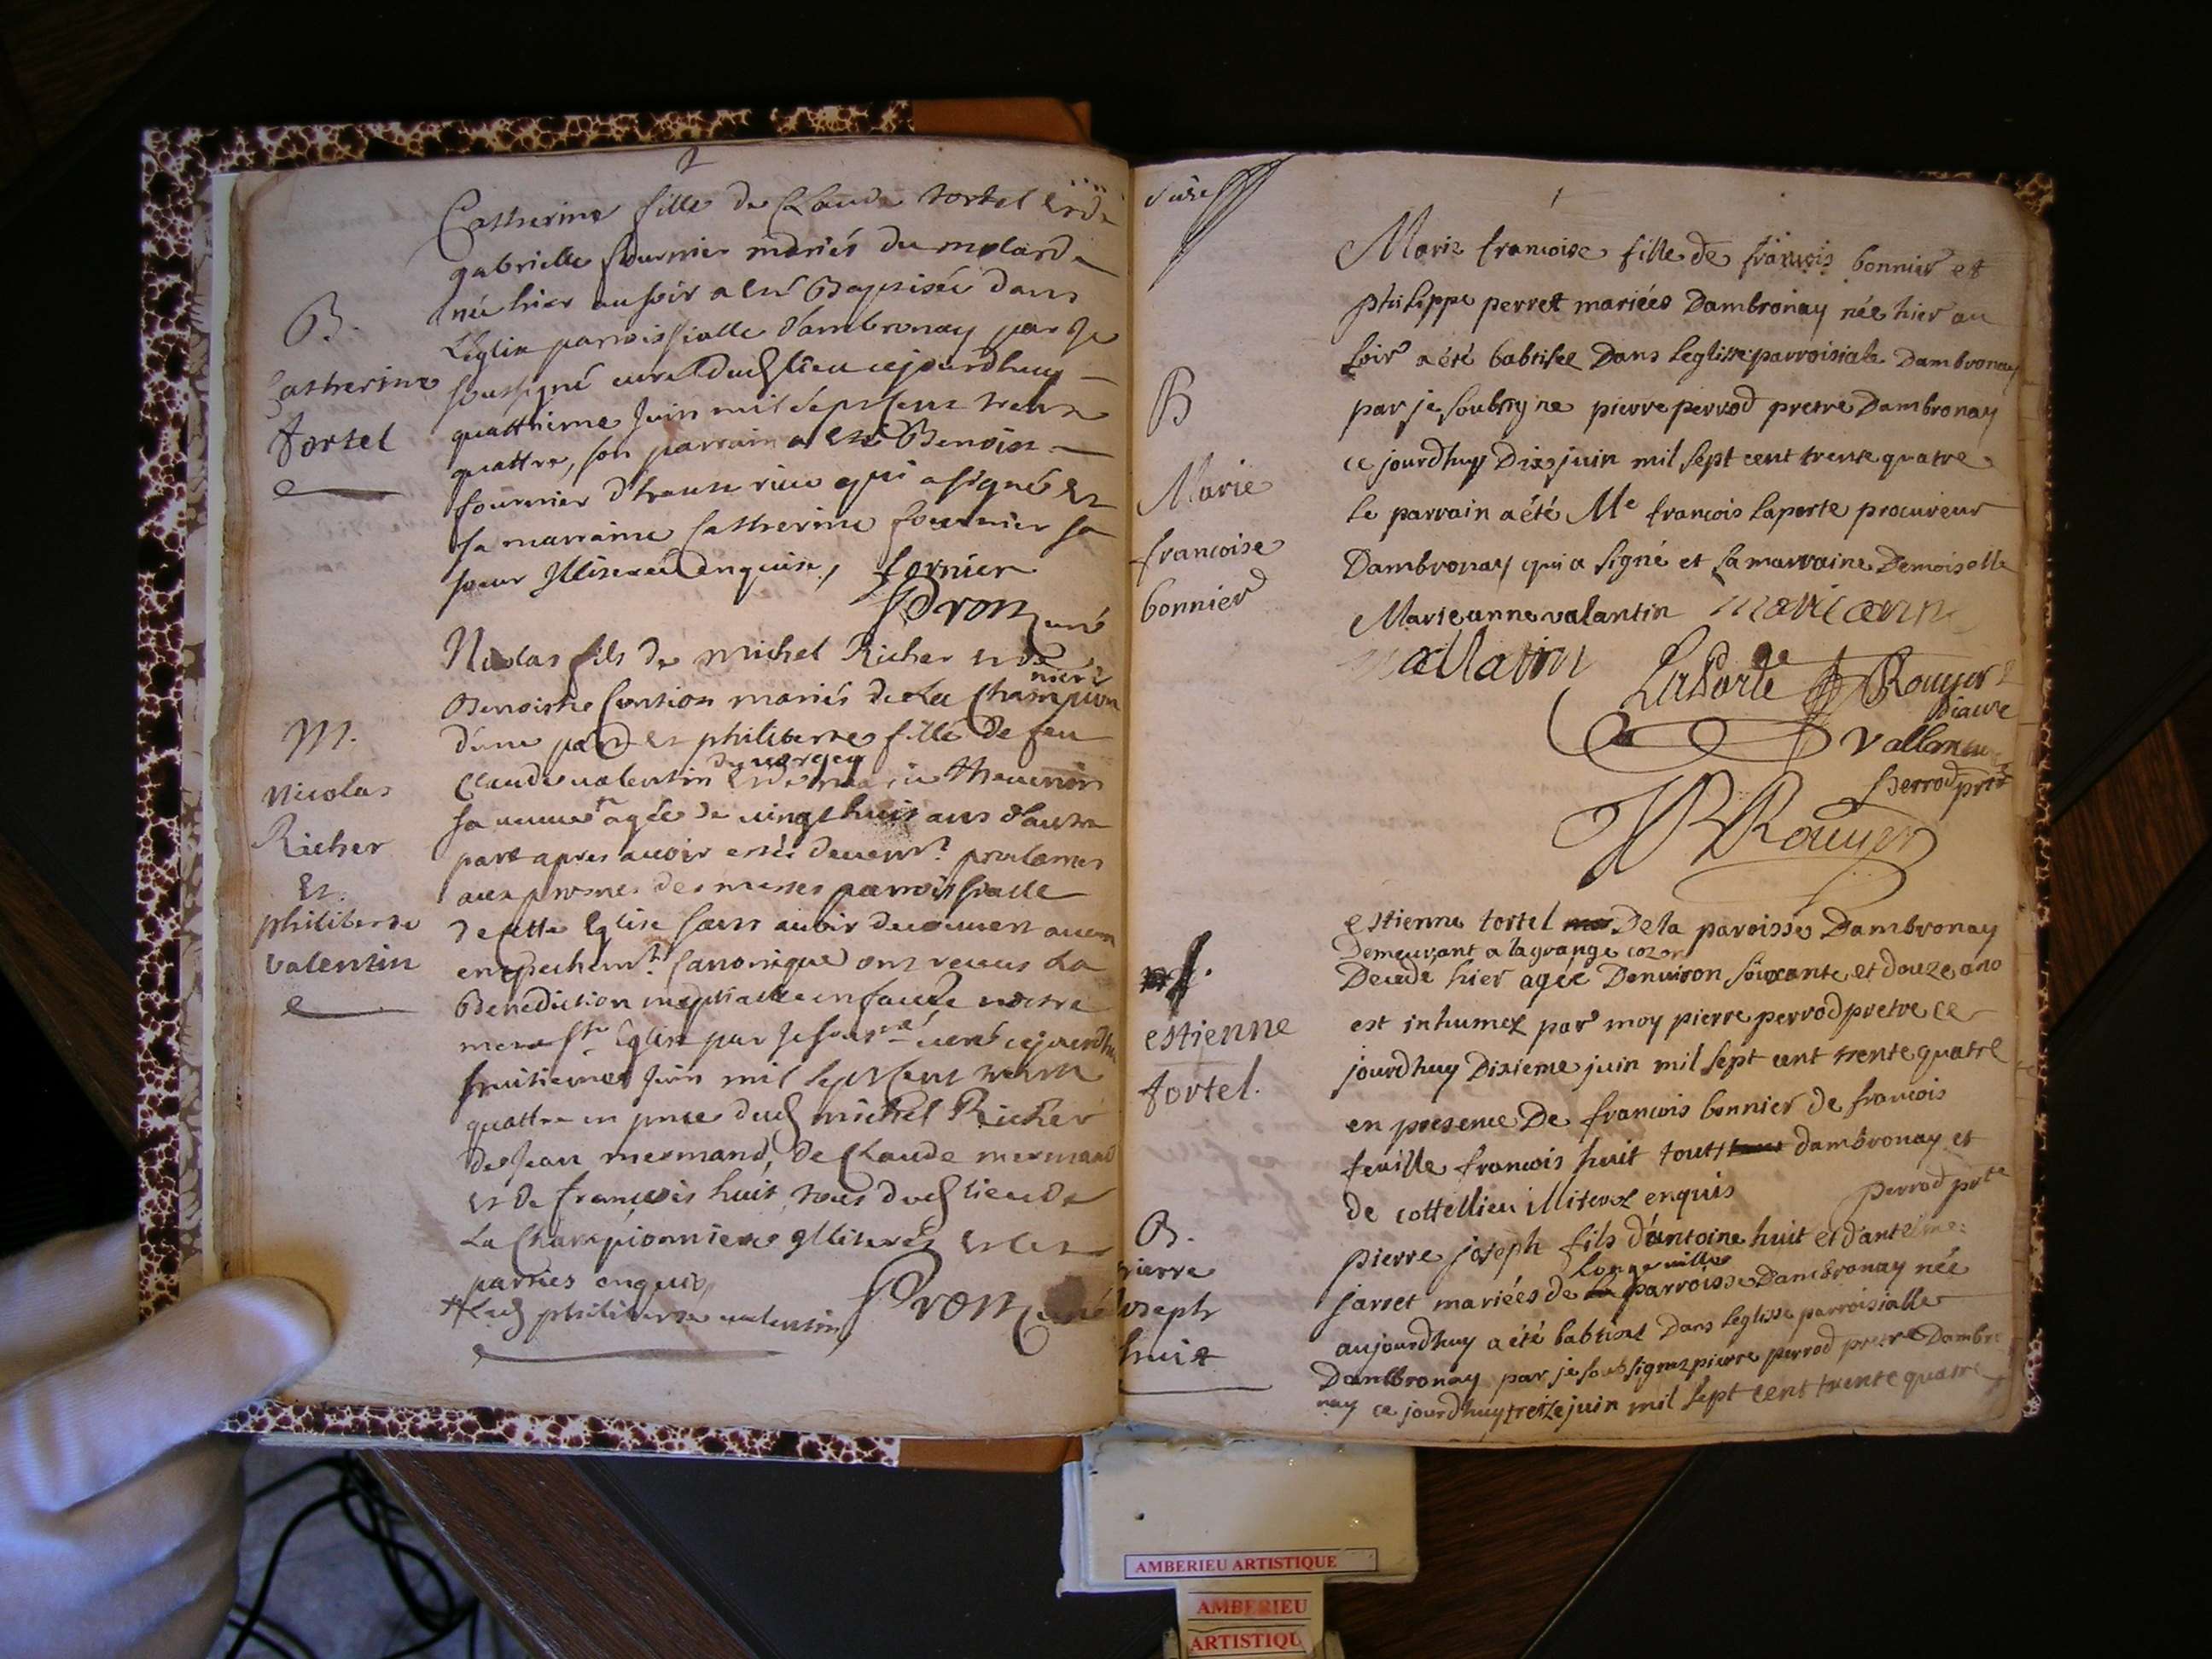 Catherine fille de Claude tortel et de
gabrielle fournier mariés du molard
née hier au soir a esté Baptisée dans
L'Eglise parroissialle d'ambronay par Je
soussigné curé dud lieu cejourdhuy
quattrieme Juin mil sept cent trente
quattre, son parrain a esté Benoist
fournier d'haute rive qui a signé et
sa marraine Catherine fournier sa
soeur Illiterée enquise, fornier
Dron curé
B.
Catherine
tortel
Nicolas fils de michel Richer et de
Benoiste mariés de La Championniere
d'une part et philiberte fille de feu
Claude valentin du vorgey et de marie thevenin
sa veuve agée de vingt huit ans d'autre
part apres avoir estés deuemt proclames
aux prosnes des messes parroissialle
de cette Eglise sans avoir decouvert aucun
empechemt Canonique ont receus La
Benediction nuptialle en face de nostre
mere ste Eglise par Je souse curé cejourdhuy
huitieme Juin mil sept cent trente
quattre en pnce dud michel Richer
de Jean mermand, de Claude mermand
et de françois huit, tous dud lieu de
La Championniere Illiterés et les
parties enquis,
lad philiberte valentin Dron curé
M.
Nicolas
Richer
Et
philiberte
Valentin
Marie francoise fille de françois bonnier et
philippe perret mariées Dambronay née hier au
soir a été babtisee Dans leglisse parroisiale Dambronay
par je soubsigne pierre perrod pretre Dambronay
ce jourdhuy Dix juin mil sept cent trente quatre
le parrain a été Me francois laporte procureur
Dambronay qui a signé et sa marraine Demoiselle
Marie anne valantin marie anne
vallatin LaPorte Rouyer
Diacre
vallantin
Perrod ptre
Rouyer
B
Marie
francoise
bonnier
estienne tortel De la paroisse Dambronay
Demeurant a la grange cozon
Decede hier agée Denuiron soixante et douze ans
est inhumez par moy pierre perrod pretre ce
jourdhuy Dixieme juin mil sept cent trente quatre
en presence De francois bonnier de francois
feuille francois huit tout dambronay et
de cottellieu illiterez enquis perrod ptre
estienne
tortel.
pierre joseph fils d'antoine huit et d'antelme
jarset mariées de longeville parroisse Dambronay née
aujourdhuy a été babtisé Dans leglisse parroisialle
Dambronay par je soubsignez pierre perrod pretre Dambro
nay ce jourdhuy treize juin mil sept cent trente quatre
B.
pierre
joseph
huit
AMBERIEU ARTISTIQUE
AMBERIEU
ARTISTIQU